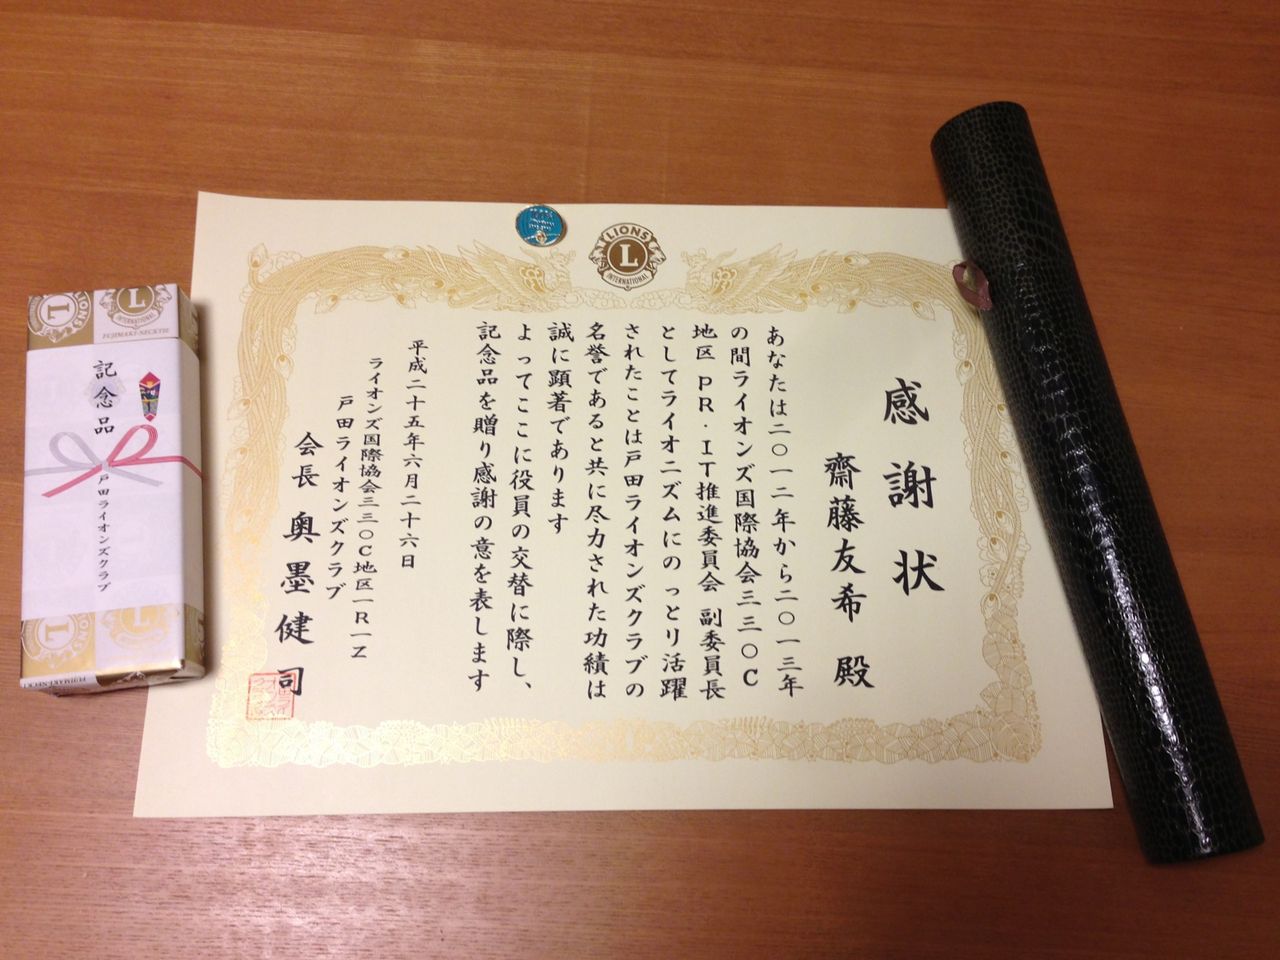 感謝状
齋藤友希 殿
あなたは二〇一二年から二〇一三年
の間ライオンズ国際協会三三〇C
地区PR・IT推進委員会 副委員長
としてライオニズムにのっとり活躍
されたことは戸田ライオンズクラブの
名誉であると共に尽力された功績は
誠に顕著であります
よってここに役員の交替に際し、
記念品を贈り感謝の意を表します
平成二十五年六月二十六日
ライオンズ国際協会三三〇C地区一R一Z
戸田ライオンズクラブ
会長 奥墨健司
LIONS
L
INTERNATIONAL
LIONS
L
INTERNATIONAL
FUJIMAKI-NECKTIE
記念品
戸田ライオンズクラブ